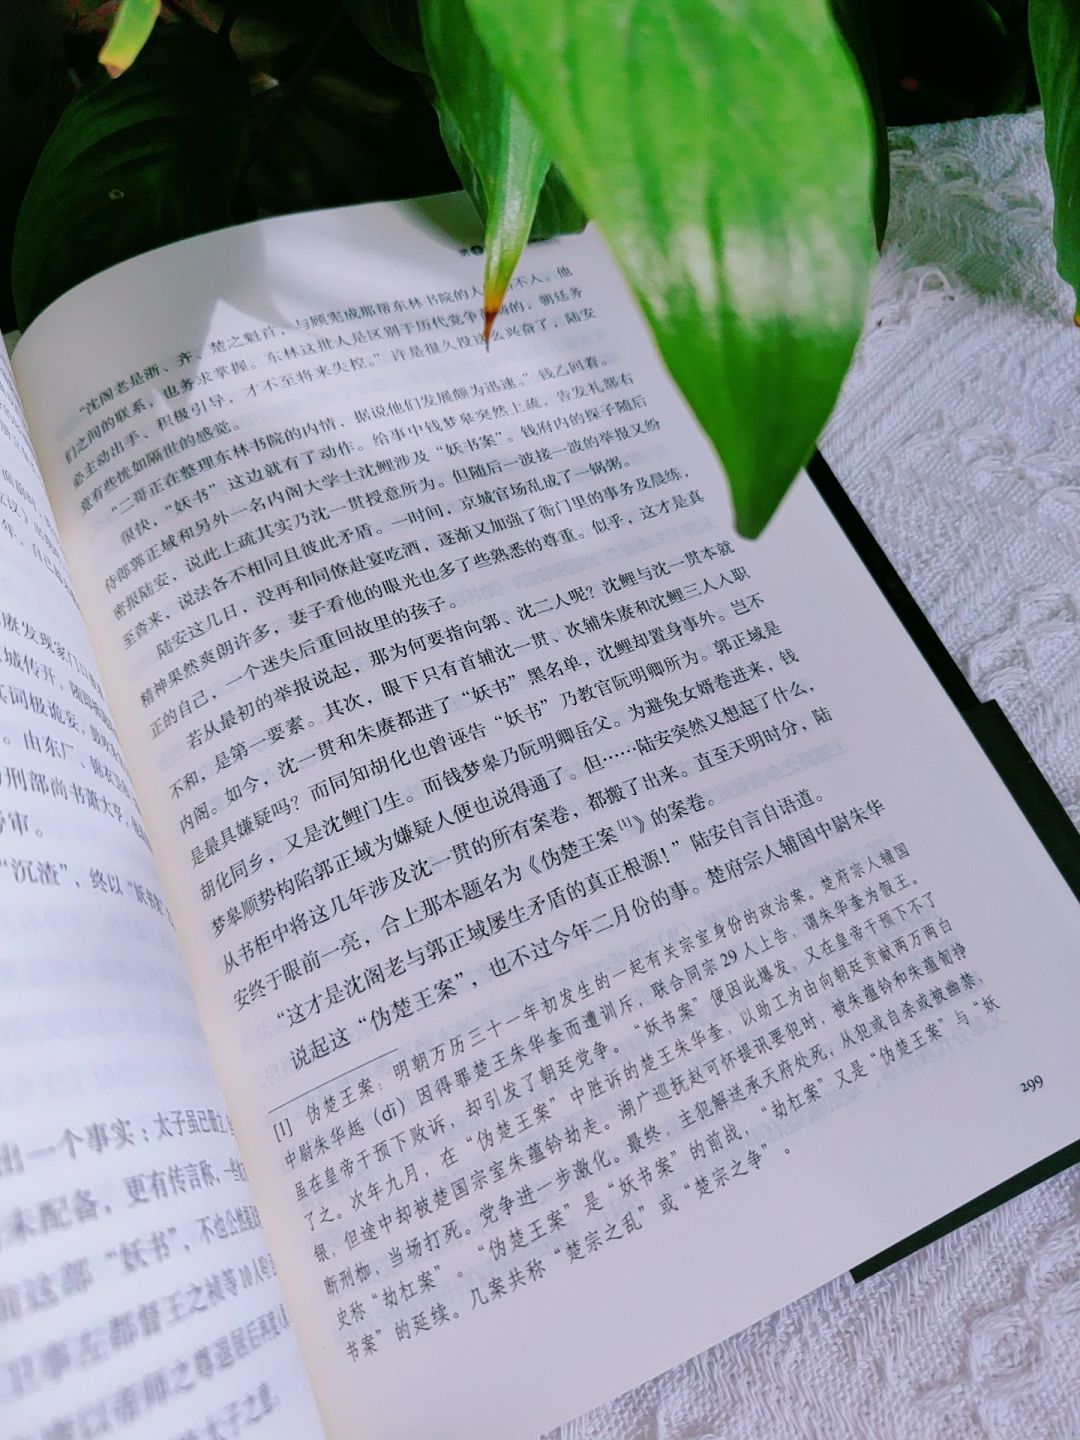 闾阎
刑部尚书萧大亨,
“沉渣”,终以“妖书案
出一个事实:太子虽已册立,
未配备,更有传言称,一些
前这部“妖书”,不也公然
都督王之祯等10人
以帝师之尊退居后
“沈阁老是浙、齐、楚之魁首,与顾宪成那帮东林书院的人 不人。他
们之间的联系,也务求掌握。东林这批人是区别于历代党争 的,朝廷务
必主动出手、积极引导,才不至将来失控。”许是很久没这么兴奋了,陆安
竟有些恍如隔世的感觉。
“二哥正在整理东林书院的内情,据说他们发展颇为迅速。”钱乙回着。
很快,“妖书”这边就有了动作。给事中钱梦皋突然上疏,告发礼部右
侍郎郭正域和另外一名内阁大学士沈鲤涉及“妖书案”。钱府内的探子随后
密报陆安,说此上疏其实乃沈一贯授意所为。但随后一波接一波的举报又纷
至沓来,说法各不相同且彼此矛盾。一时间,京城官场乱成了一锅粥。
陆安这几日,没再和同僚赴宴吃酒,逐渐又加强了衙门里的事务及晨练,
精神果然爽朗许多,妻子看他的眼光也多了些熟悉的尊重。似乎,这才是真
正的自己,一个迷失后重回故里的孩子。
若从最初的举报说起,那为何要指向郭、沈二人呢?沈鲤与沈一贯本就
不和,是第一要素。其次,眼下只有首辅沈一贯、次辅朱赓和沈鲤三人入职
内阁。如今,沈一贯和朱赓都进了“妖书”黑名单,沈鲤却置身事外。岂不
是最具嫌疑吗?而同知胡化也曾诬告“妖书”乃教官阮明卿所为。郭正域是
胡化同乡,又是沈鲤门生。而钱梦皋乃阮明卿岳父。为避免女婿卷进来,钱
梦皋顺势构陷郭正域为嫌疑人便也说得通了。但……陆安突然又想起了什么,
从书柜中将这几年涉及沈一贯的所有案卷,都搬了出来。直至天明时分,陆
安终于眼前一亮,合上那本题名为《伪楚王案[1]》的案卷。
“这才是沈阁老与郭正域屡生矛盾的真正根源!”陆安自言自语道。
说起这“伪楚王案”,也不过今年二月份的事。楚府宗人辅国中尉朱华
[1] 伪楚王案:明朝万历三十一年初发生的一起有关宗室身份的政治案。楚府宗人辅国
中尉朱华趆(dī)因得罪楚王朱华奎而遭训斥,联合同宗29人上告,谓朱华奎为假王。
虽在皇帝干预下败诉,却引发了朝廷党争。“妖书案”便因此爆发,又在皇帝干预下不了
了之。次年九月,在“伪楚王案”中胜诉的楚王朱华奎,以助工为由向朝廷贡献两万两白
银,但途中却被楚国宗室朱蕴钤劫走。湖广巡抚赵可怀提讯要犯时,被朱蕴钤和朱蕴訇挣
断刑枷,当场打死。党争进一步激化。最终,主犯解送承天府处死,从犯或自杀或被幽禁,
史称“劫杠案”。“伪楚王案”是“妖书案”的前战,“劫杠案”又是“伪楚王案”与“妖
书案”的延续。几案共称“楚宗之乱”或“楚宗之争”。
299